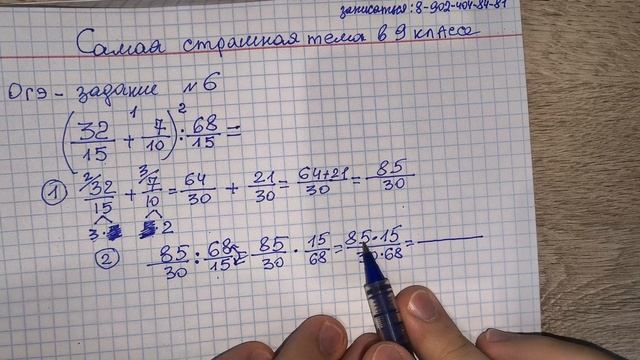 записаться: 8-902-404-84-81
Самая страшная тема в 9 классе
ОГЭ - задание №6
(32/15 + 7/10) : 68/15 =
1 2
① 2/ 32/15 + 3/ 7/10 = 64/30 + 21/30 = 64+21/30 = 85/30
3· 2
② 85/30 : 68/15 = 85/30 · 15/68 = 85·15/30·68 =